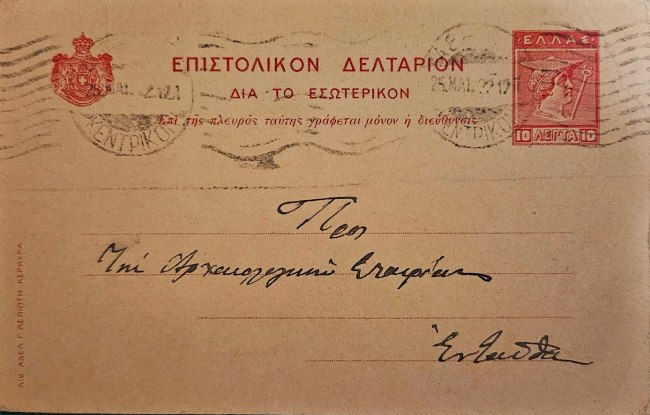 ΕΛΛΑΣ
ΕΠΙΣΤΟΛΙΚΟΝ ΔΕΛΤΑΡΙΟΝ
ΔΙΑ ΤΟ ΕΣΩΤΕΡΙΚΟΝ
Ἐπὶ τῆς πλευρᾶς ταύτης γράφεται μόνον ἡ διεύθυνσις
10 ΛΕΠΤΑ 10
25 ΜΑΪ.
ΚΕΝΤΡΙΚΟΝ
25 ΜΑΪ.
ΚΕΝΤΡΙΚΟ
Προς
Την Αρχαιολογικήν Εταιρείαν
Ἐνταῦθα
ΛΙΘ. ΑΔΕΛ. Γ. ΑΣΠΙΩΤΗ-ΚΕΡΚΥΡΑ